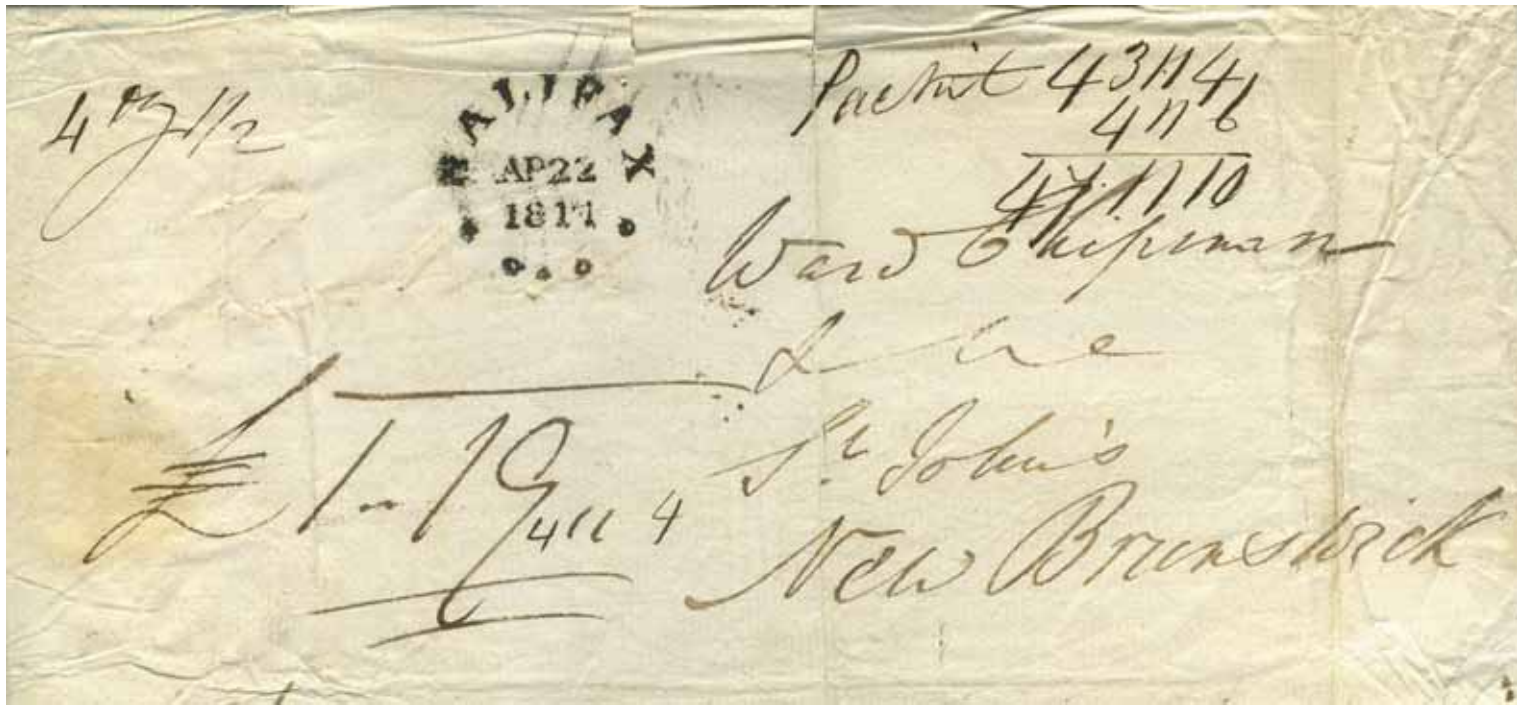 4 oz 1/2
HALIFAX
AP 22
1817
Packit 43 11 4
4 11 6
47 11 10
Ward Chipman
St. John's
New Brunswick
£ 1-19
4 11 4